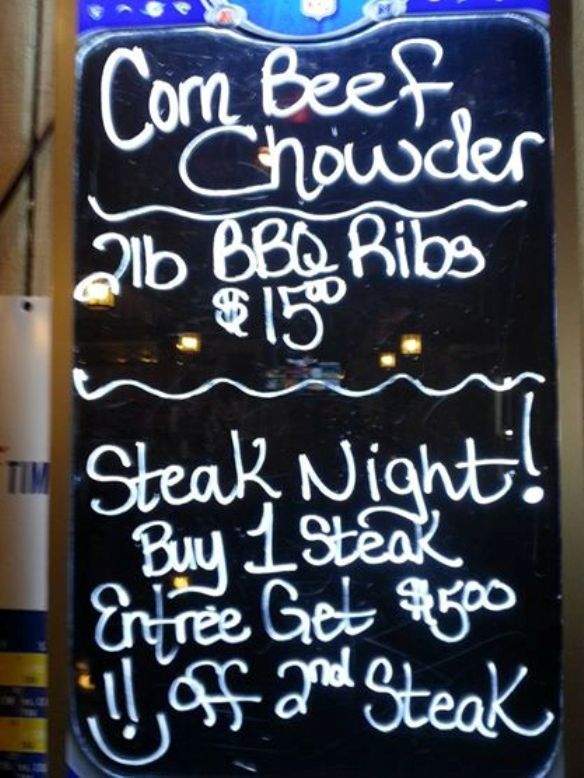 Corn Beef
Chowder
2lb BBQ Ribs
$15⁰⁰
Steak Night!
Buy 1 Steak
Entree Get $5⁰⁰
!! off 2nd Steak
TIM